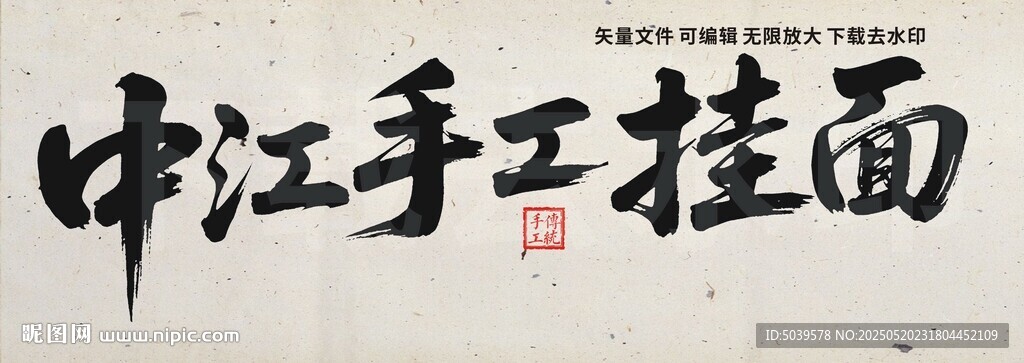 矢量文件 可编辑 无限放大 下载去水印
中江手工挂面
傳統
手工
昵图网 www.nipic.com
ID:5039578 NO:20250520231804452109